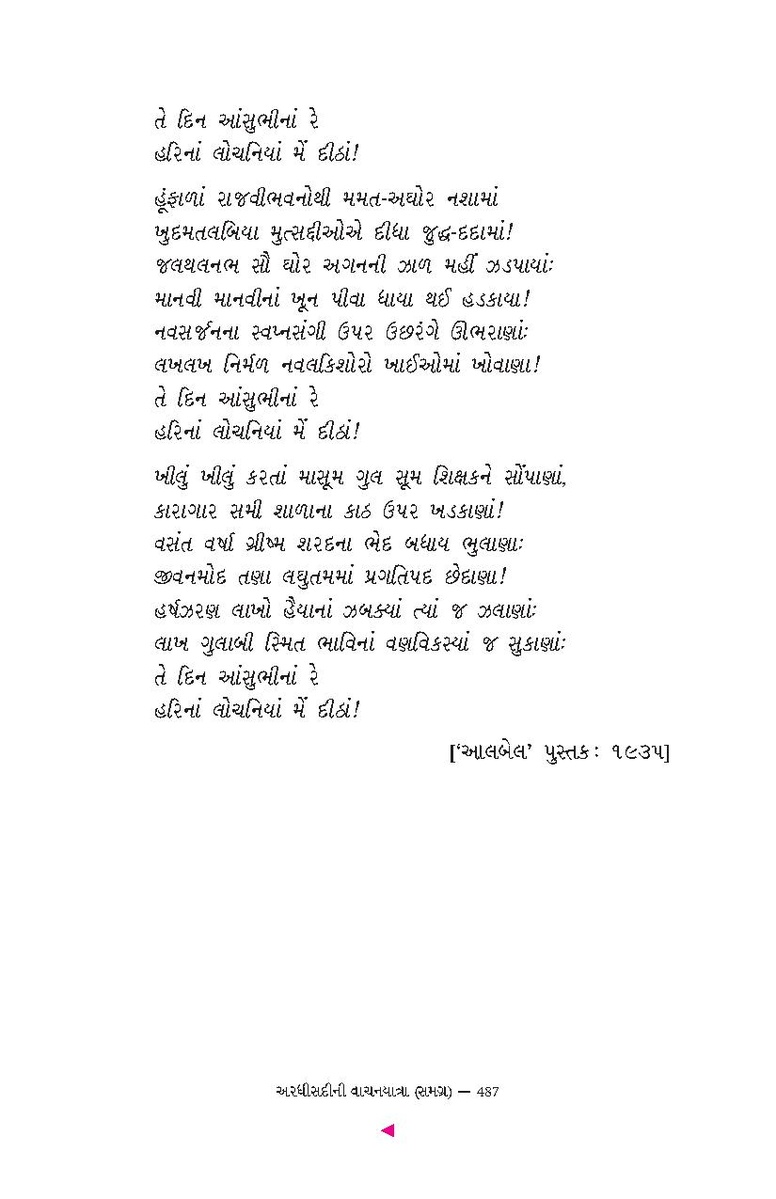 તે દિન આંસુભીનાં રે
હરિનાં લોચનિયાં મેં દીઠાં!
હૂંફાળાં રાજવીભવનોથી મમત-અઘોર નશામાં
ખુદમતલબિયા મુત્સદ્દીઓએ દીધા જુદ્ધ-દદામાં!
જલથલનભ સૌ ઘોર અગનની ઝાળ મહીં ઝડપાયાંઃ
માનવી માનવીનાં ખૂન પીવા ધાયા થઈ હડકાયા!
નવસર્જનના સ્વપ્નસંગી ઉપર ઉછરંગે ઊભરાણાંઃ
લખલખ નિર્મળ નવલકિશોરો ખાઈઓમાં ખોવાણા!
તે દિન આંસુભીનાં રે
હરિનાં લોચનિયાં મેં દીઠાં!
ખીલું ખીલું કરતાં માસૂમ ગુલ સૂમ શિક્ષકને સોંપાણાં,
કારાગાર સમી શાળાના કાઠ ઉપર ખડકાણાં!
વસંત વર્ષા ગ્રીષ્મ શરદના ભેદ બધાય ભુલાણાઃ
જીવનમોદ તણા લઘુતમમાં પ્રગતિપદ છેદાણા!
હર્ષઝરણ લાખો હૈયાનાં ઝબક્યાં ત્યાં જ ઝલાણાંઃ
લાખ ગુલાબી સ્મિત ભાવિનાં વણવિકસ્યાં જ સુકાણાંઃ
તે દિન આંસુભીનાં રે
હરિનાં લોચનિયાં મેં દીઠાં!
[‘આલબેલ’ પુસ્તક: ૧૯૩૫]
અરધીસદીની વાચનયાત્રા (સમગ્ર) — 487